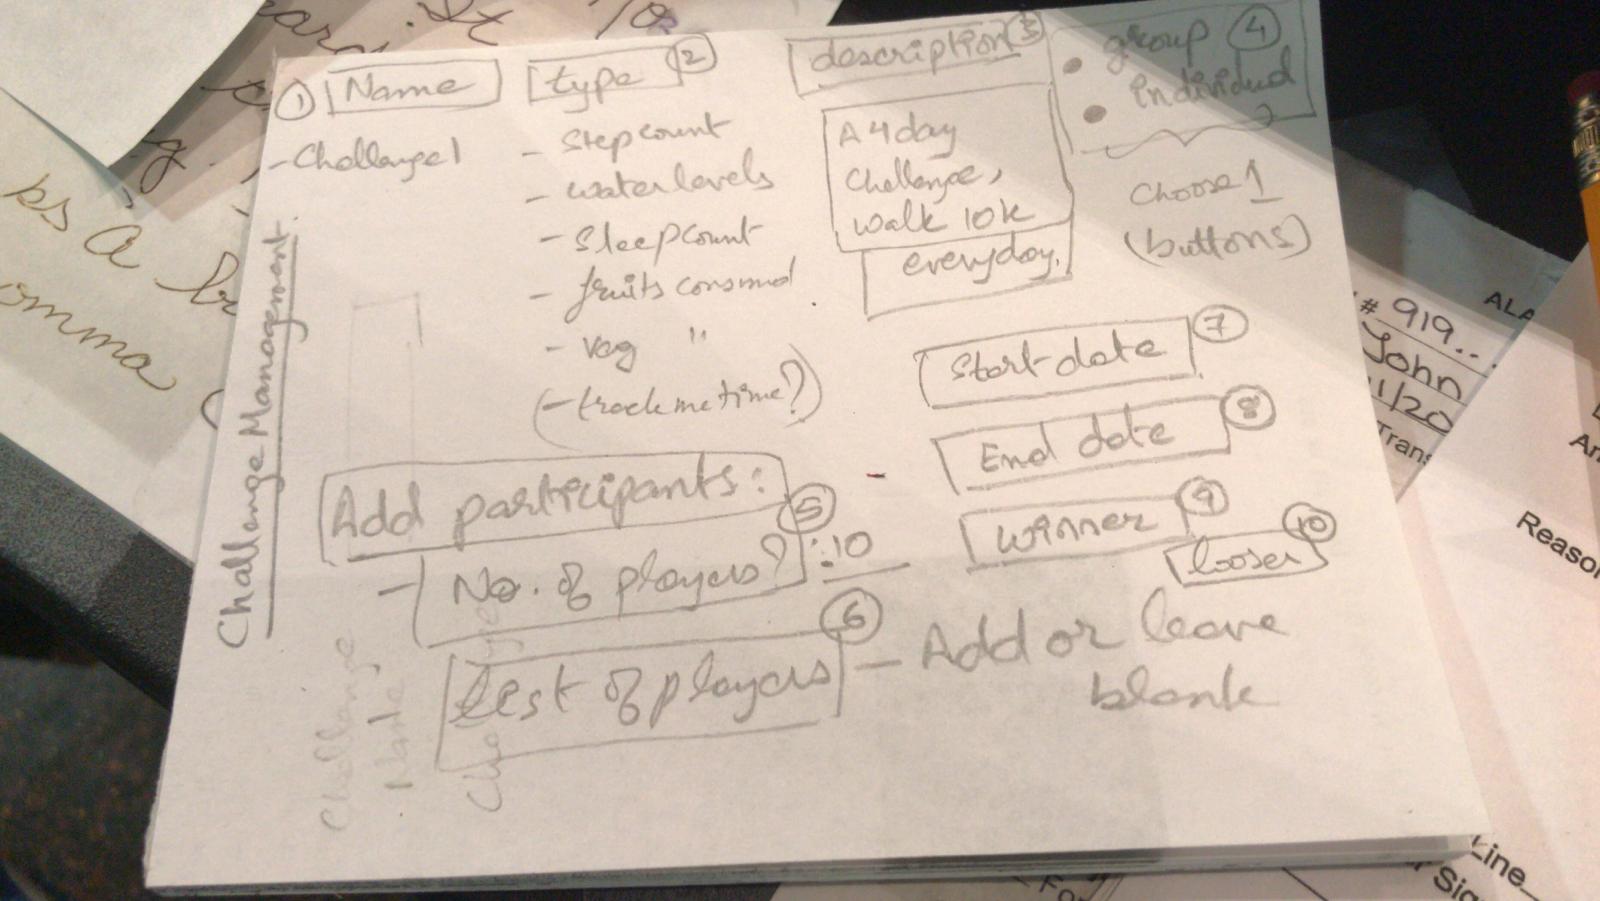 Challenge Management
① Name
- Challenge 1
type ②
- Stepcount
- waterlevels
- Sleepcount
- fruits consmud
- veg "
(- trackmetime?)
description ③
A 4 day
Challenge,
walk 10k
everyday.
④
• group
• individual
Choose 1
(buttons)
Add participants:
- No. of players? ⑤ : 10
List of players ⑥ - Add or leave
blank
Start date ⑦
End date ⑧
winner ⑨
looser ⑩
Challenge
Name
# 919..
John
1/20
Trans
ALA
An
Reaso
Line
Sig
Fo
omma